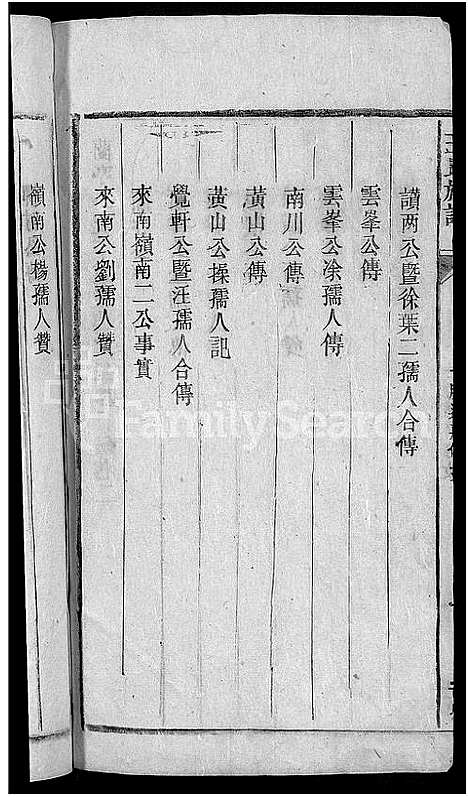 讃两公暨徐葉二孺人合傳
雲峯公傳
雲峯公涂孺人傳
南川公傳
黃山公傳
黃山公操孺人記
覺軒公暨汪孺人合傳
來南嶺南二公事實
來南公劉孺人贊
嶺南公楊孺人贊
FamilySearch